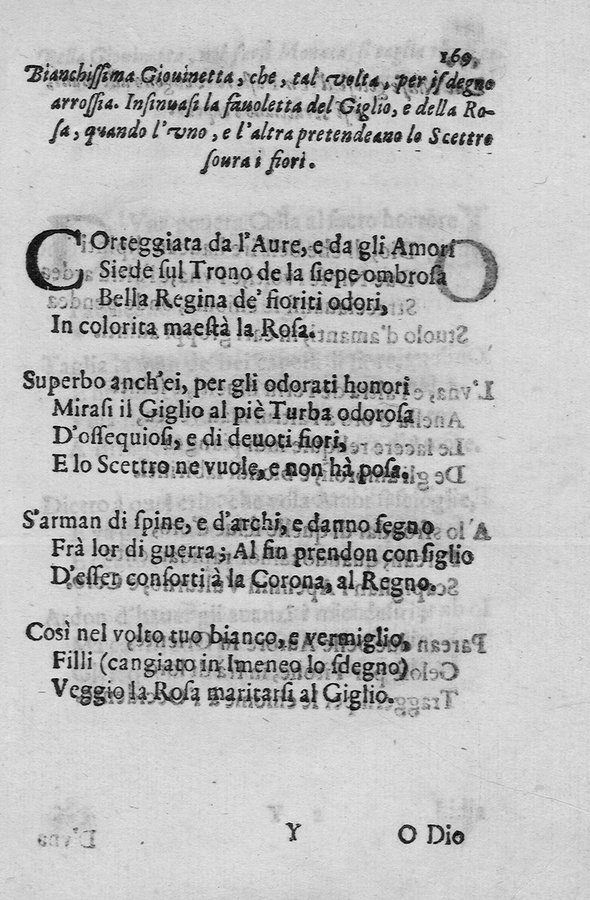 169.
Bianchiſſima Giouinetta, che, tal volta, per iſdegno
arroſſia. Inſinuaſi la fauoletta del Giglio, e della Ro-
ſa, quando l'vno, e l'altra pretendeano lo Scettro
ſoura i fiori.
COrteggiata da l'Aure, e da gli Amori
Siede ſul Trono de la ſiepe ombroſa
Bella Regina de' fioriti odori,
In colorita maeſtà la Roſa.
Superbo anch'ei, per gli odorati honori
Miraſi il Giglio al piè Turba odoroſa
D'oſſequioſi, e di deuoti fiori,
E lo Scettro ne vuole, e non hà poſa.
S'arman di ſpine, e d'archi, e danno ſegno
Frà lor di guerra; Al fin prendon conſiglio
D'eſſer conſorti à la Corona, al Regno.
Così nel volto tuo bianco, e vermiglio,
Filli (cangiato in Imeneo lo ſdegno)
Veggio la Roſa maritarſi al Giglio.
Y
O Dio